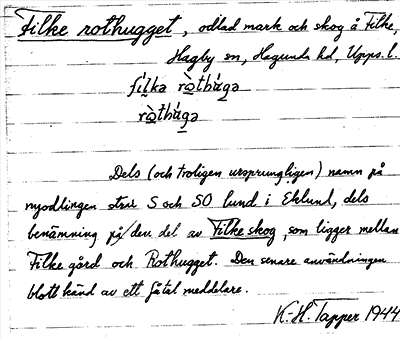 Filke rothugget, odlad mark och skog å Filke,
Hagby sn, Hagunda hd, Upps. l.
filka ròthùga
ròthùga
Dels (och troligen ursprungligen) namn på
nyodlingen strax S och SO lund i Eklund, dels
benämning på den del av Filke skog, som ligger mellan
Filke gård och Rothugget. Den senare användningen
blott känd av ett fåtal meddelare.
K.-H. Tapper 1944